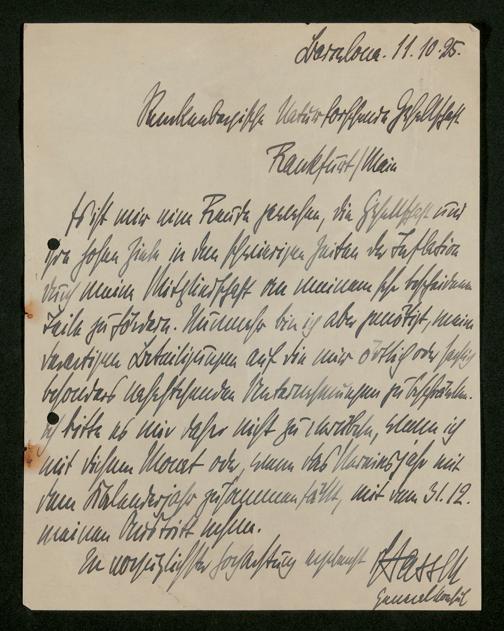 Barcelona. 11.10.25.
Senckenbergische Naturforschende Gesellschaft
Frankfurt/Main
Es ist mir eine Freude gewesen, die Gesellschaft und
ihre hohen Ziele in den schwierigen Zeiten der Inflation
durch meine Mitgliedschaft an meinem sehr bescheidenen
Teile zu fördern. Nunmehr bin ich aber genötigt, meine
derartigen Beteiligungen auf die mir örtlich oder
besonders nahestehenden Unternehmungen zu beschränken.
Ich bitte es mir daher nicht zu verübeln, wenn ich
mit diesem Monat oder, wenn das Vereinsjahr mit
dem Kalenderjahr zusammenfällt, mit dem 31.12.
meinen Austritt nehme.
In vorzüglichster Hochachtung ergebenst Hassell
Generalkonsul